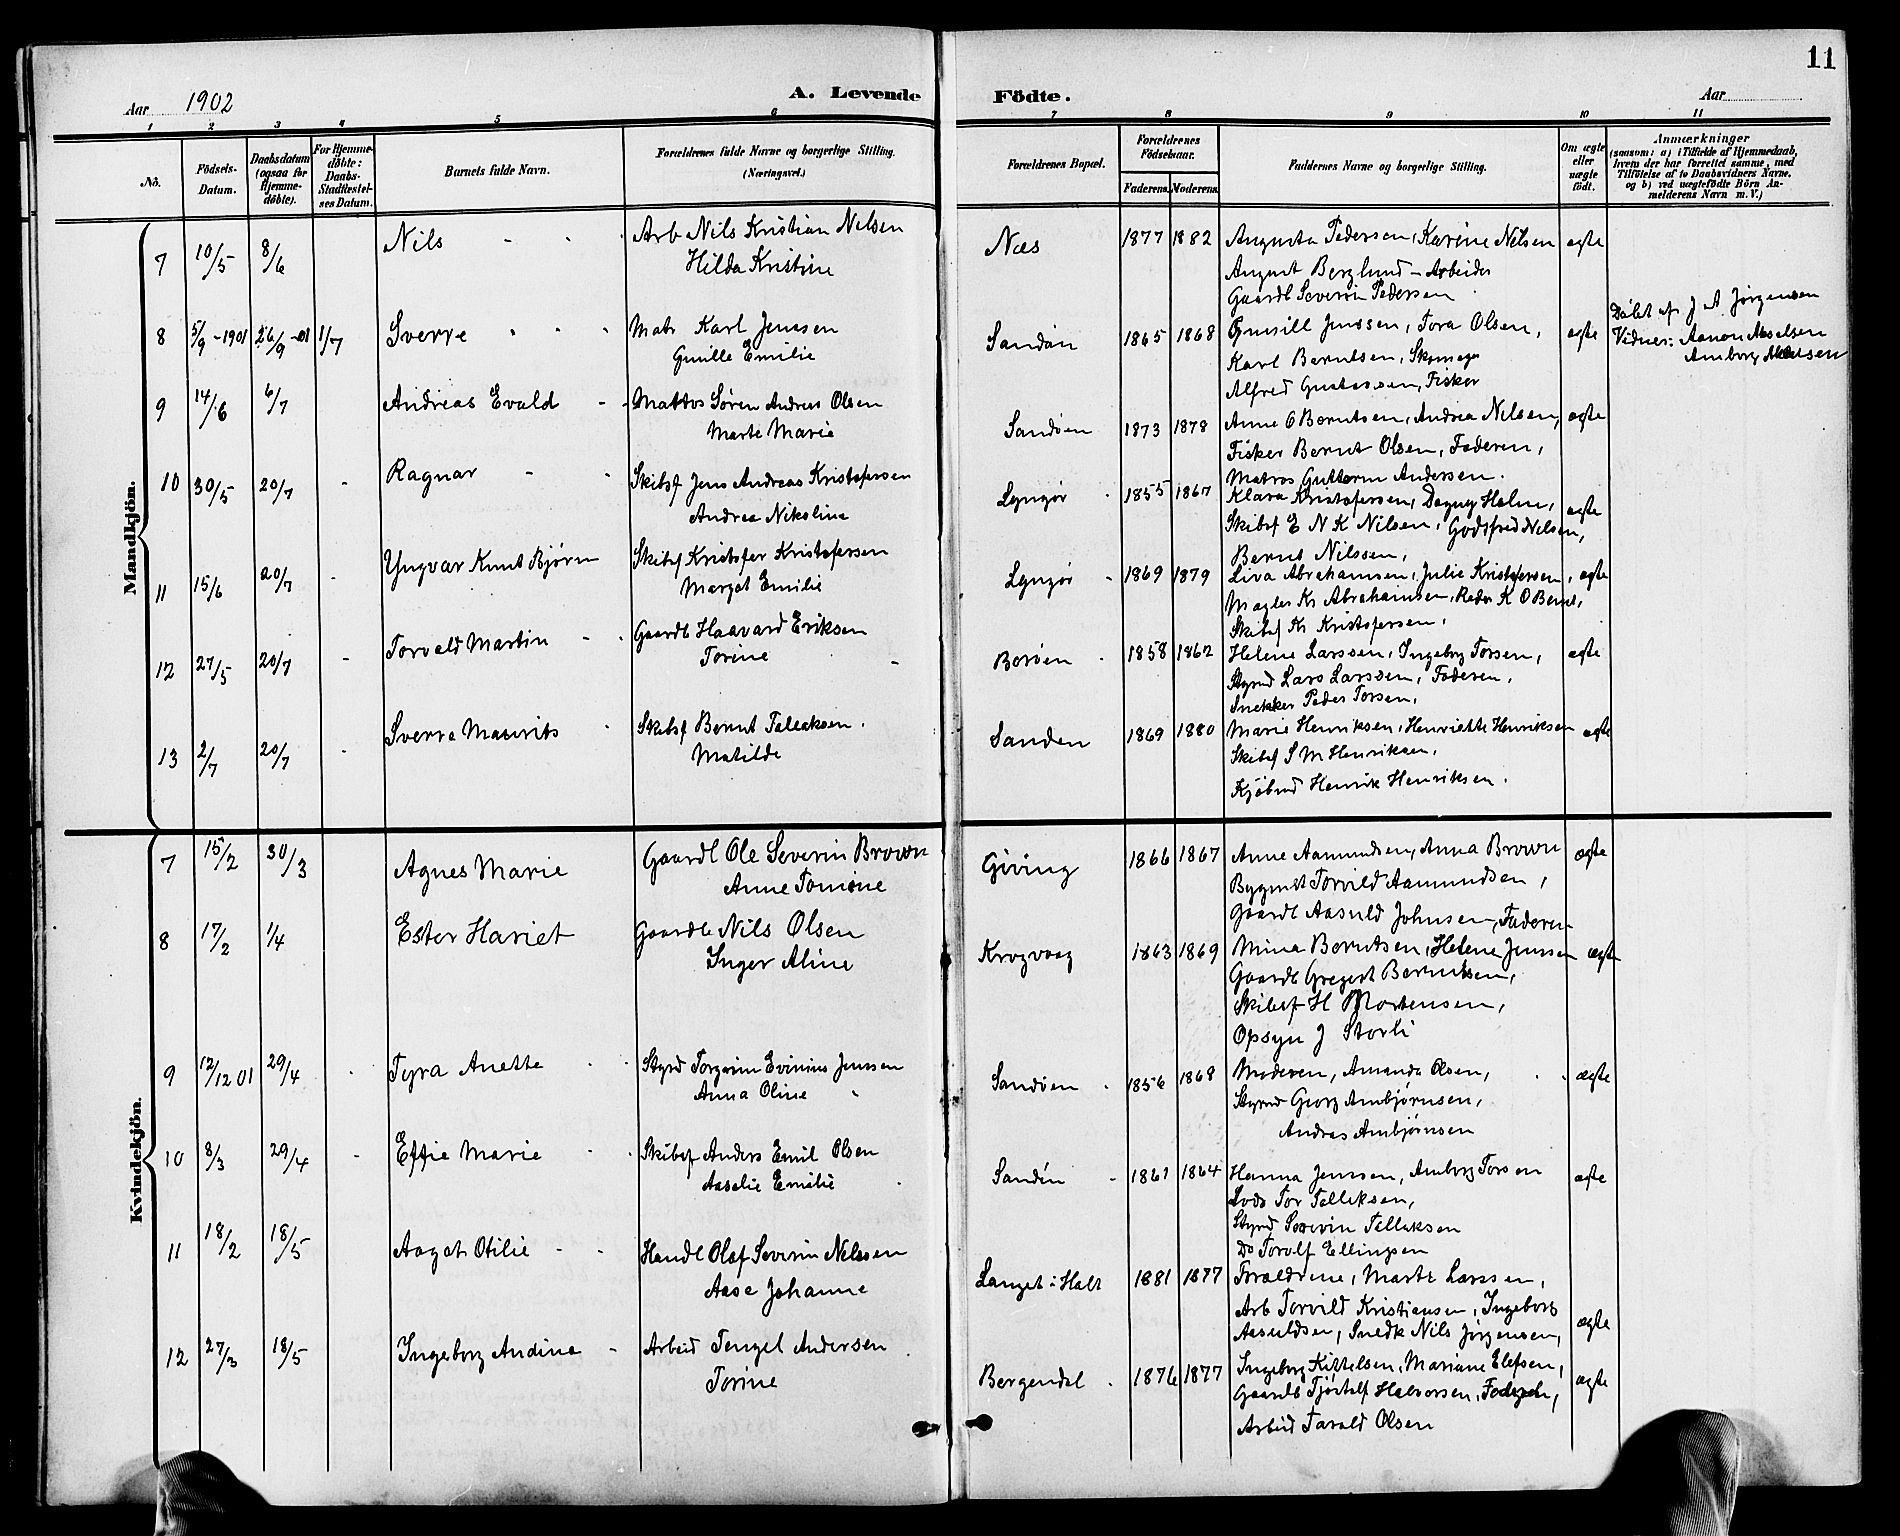 11
Aar 1902 A. Levende Födte. Aar
1 2 3 4 5 6 7 8 9 10 11
No.
Födsels-Datum.
Daabsdatum (ogsaa for Hjemme-döbte).
For Hjemme-döbte: Daabs-Stadfæstel-ses Datum.
Barnets fulde Navn.
Forældrenes fulde Navne og borgerlige Stilling. (Næringsvei.)
Forældrenes Bopæl.
Forældrenes Födselsaar.
Faderens. Moderens.
Faddernes Navne og borgerlige Stilling.
Om ægte eller uægte födt.
Anmærkninger
(saasom: a) i Tilfælde af Hjemmedaab,
hvem der har forrettet samme, med
Tilföielse af to Daabsvidners Navne.
og b) ved uægtefödte Börn An-
melderens Navn m. V.)
Mandkjön.
7 10/5 8/6 Nils Arb Nils Kristian Nilsen Næs 1877 1882 Augusta Pedersen, Karine Nilsen ægte
Hilda Kristine August Berglund - Arbeider
Gaardb Severin Pedersen
8 5/9-1901 26/9-01 1/7 Sverre Matr Karl Jenssen Sandøen 1865 1868 Gunill Jenssen, Tora Olsen, ægte Døbt af J A Jørgensen
Gunille Emilie Karl Berntsen, Skomager Vidner: Aanon Axelsen
Alfred Gustassen, Fisker Amborg Axelsen
9 14/6 6/7 Andreas Evald Matros Søren Andreas Olsen Sandøen 1873 1878 Anne O Berntsen, Andrea Nilsen, ægte
Marte Marie Fisker Bernt Olsen, Faderen,
Matros Guttorm Andersen.
10 30/5 20/7 Ragnar Skibsf Jens Andreas Kristofersen Lyngør 1855 1867 Klara Kristofersen, Dagny Holm, ægte
Andrea Nikoline Skibsf E N K Nilsen, Godtfred Nilsen,
Bernt Nilssen,
11 15/6 20/7 Yngvar Knut Bjørn Skibsf Kristofer Kristofersen Lyngør 1869 1879 Liva Abrahamsen, Julie Kristofersen, ægte
Margot Emilie Mægler Kr Abrahamsen, Reder K O Bernt,
Skibsf Kr Kristofersen,
12 27/5 20/7 Torvald Martin Gaardb Haavard Eriksen Borøen 1858 1862 Helene Larssen, Ingeborg Torsen, ægte
Torine Styrmd Lars Larssen, Faderen,
Snekker Peder Torsen,
13 2/7 20/7 Sverre Maurits Skibsf Bernt Tellaksen. Sandøen 1869 1880 Marie Henriksen, Henriette Henriksen ægte
Matilde Skibsf S M Henriksen,
Kjøbmd Henrik Henriksen.
Kvindekjön.
7 15/2 30/3 Agnes Marie Gaardb Ole Severin Brown Giving 1866 1867 Anne Aamundsen, Anna Brown ægte
Anne Tomine Bygmst Torvild Aamundsen,
Gaardb Aasuld Johnsen, Faderen
8 17/2 1/4 Ester Hariet Gaardb Nils Olsen Krogvaag 1863 1869 Mina Berntsen, Helene Jenssen ægte
Inger Aline Gaardb Gregert Berntsen,
Skibsf H Mortensen,
Opsyn J Storli
9 12/12 01 29/4 Tyra Anette Styrd Torgrim Evinius Jenssen Sandøen 1856 1868 Moderen, Amanda Olsen, ægte
Anna Oline Styrmd Georg Ambjørnsen,
Andreas Ambjørnsen
10 8/3 29/4 Effie Marie Skibsf Anders Emil Olsen Sandøn 1861 1864 Hanna Jenssen, Amborg Torsen ægte
Aaselie Emilie Lods Tor Tellefsen,
Styrd Severin Tellaksen
Do Torolf Ellingsen
11 18/2 18/5 Aagot Otilie Handl Olaf Severin Nilssen Langet i Holt 1881 1877 Forældrene, Marte Larssen,
Aase Johanne Arb Torvild Kristiansen, Ingeborg
Aasuldsen, Snedk Nils Jørgensen, ægte
12 27/3 18/5 Ingeborg Andine Arbeid Tengel Andersen Bergendal 1876 1877 Ingeborg Kittelsen, Mariane Elefsen, ægte
Torine Gaardb Tjøstolf Halvorsen, Faderen,
Arbeid Tarald Olsen